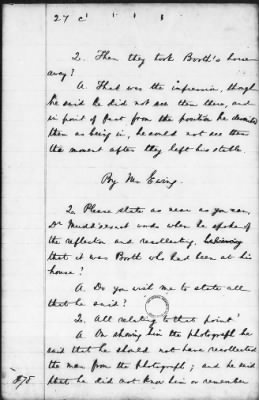 27
Q. Then they took Booth's horse
away?
A. That was the impression, though
he said he did not see them there, and
in point of fact from the position he described
them as being in, he could not see them
the moment after they left his stable.
By Mr Ewing.
Q. Please state as near as you can,
Dr Mudd's exact words when he spoke of
the reflection and recollecting, believing
that it was Booth who had been at his
house?
A. Do you wish me to state all
that he said?
Q. All relating to that point?
A. On showing him the photograph he
said that he should not have recollected
the man from the photograph; and he said
that he did not know him or remember